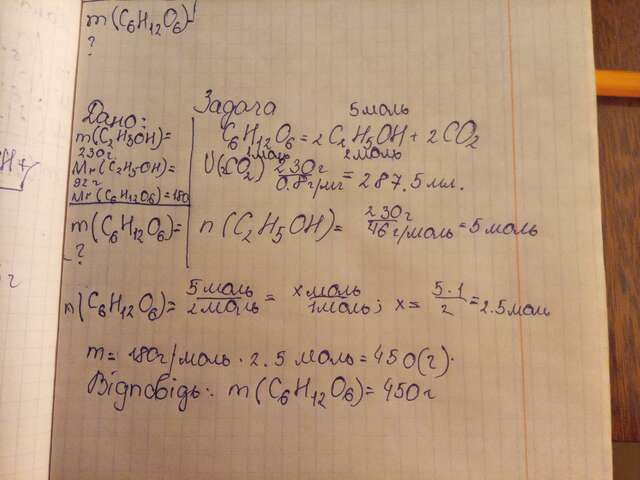 m(C₆H₁₂O₆)-
?
Задача
Дано:
m(C₂H₅OH)=
230г
Mr(C₂H₅OH)=
92г
Mr(C₆H₁₂O₆)=180
m(C₆H₁₂O₆)=
-?
5моль
C₆H₁₂O₆=2C₂H₅OH+2CO₂
1моль 2моль
U(CO₂) 230г/0.8г/мг=287.5мл.
n(C₂H₅OH)=230г/46г/моль=5моль
n(C₆H₁₂O₆)=5моль/2моль=xмоль/1моль; x=5·1/2=2.5моль
m=180г/моль·2.5моль=450(г).
Відповідь: m(C₆H₁₂O₆)=450г